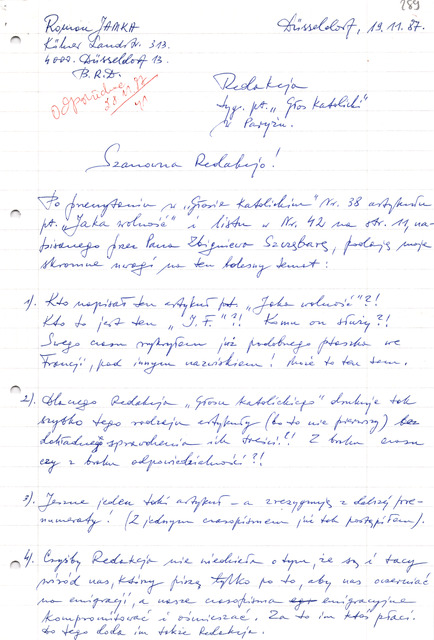 289
Roman JAMKA
Düsseldorf, 19.11.87.
Kölner Landstr. 313.
4000. Düsseldorf 13.
B.R.D.
Redakcja
tyg. pt. „Głos Katolicki"
w Paryżu.
Szanowna Redakcjo!
Po przeczytaniu w „Głosie Katolickim" Nr. 38 artykułu
pt. „Jaka wolność" i listu w Nr. 42 na str. 11, na-
pisanego przez Pana Zbigniewa Szcząbarę, podaję moje
skromne uwagi na ten bolesny temat:
1). Kto napisał ten artykuł pt. „Jaka wolność"?!
Kto to jest ten „J.F."?! Komu on służy?!
Swego czasu wykryłem już podobnego ptaszka we
Francji, pod innym nazwiskiem! Może to ten sam.
2). Dlaczego Redakcja „Głosu Katolickiego" drukuje tak
szybko tego rodzaju artykuły (bo to nie pierwszy) bez
dokładnego sprawdzenia ich treści?! Z braku czasu
czy z braku odpowiedzialności?!
3). Jeszcze jeden taki artykuł – a zrezygnuję z dalszej pre-
numeraty! (Z jednym czasopismem już tak postąpiłem).
4). Czyżby Redakcja nie wiedziała o tym, że są i tacy
wśród nas, którzy piszą tylko po to, aby nas oczerniać
na emigracji, a nasze czasopisma emigracyjne
kompromitować i ośmieszać. Za to im ktoś płaci.
Do tego doda im także Redakcja.